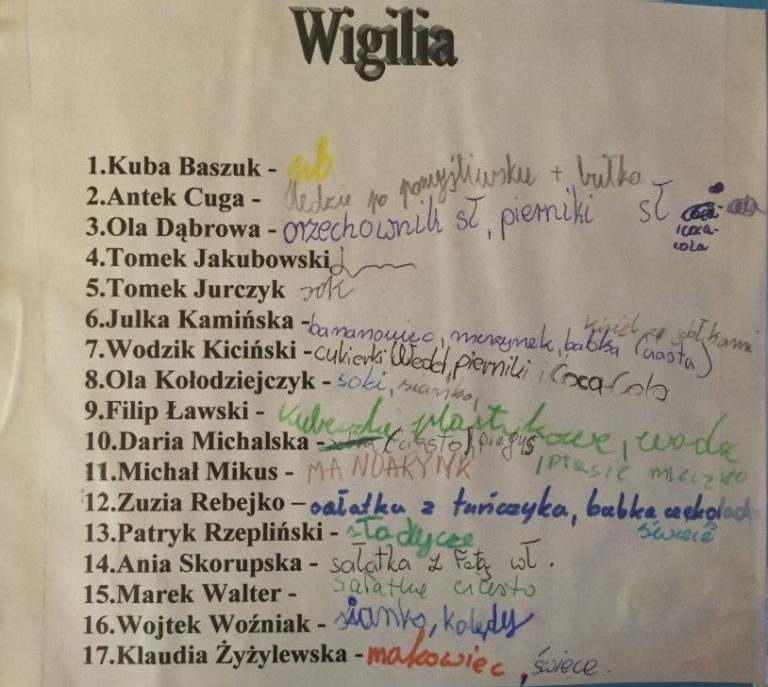 Wigilia
1.Kuba Baszuk -
2.Antek Cuga - śledzie po pomyśliwsku + bułka
3.Ola Dąbrowa - orzechownik sł, pierniki sł
i coca-
cola
4.Tomek Jakubowski
5.Tomek Jurczyk sok
6.Julka Kamińska - bananowiec, murzynek, babka (ciasta)
7.Wodzik Kiciński - cukierki Wedel, pierniki i Coca-Cola
8.Ola Kołodziejczyk - soki, sianko,
9.Filip Ławski - kubeczki plastykowe, woda
10.Daria Michalska - (ciasto) piegus
, ptasie mleczko
11.Michał Mikus - MANDARYNK
12.Zuzia Rebejko – sałatka z tuńczyka, babka czekolad
świece
13.Patryk Rzepliński - słodycze
14.Ania Skorupska - sałatka z Fetą wł.
15.Marek Walter - sałatkę ciasto
16.Wojtek Woźniak - sianko, kolędy
17.Klaudia Żyżylewska - makowiec, świece.